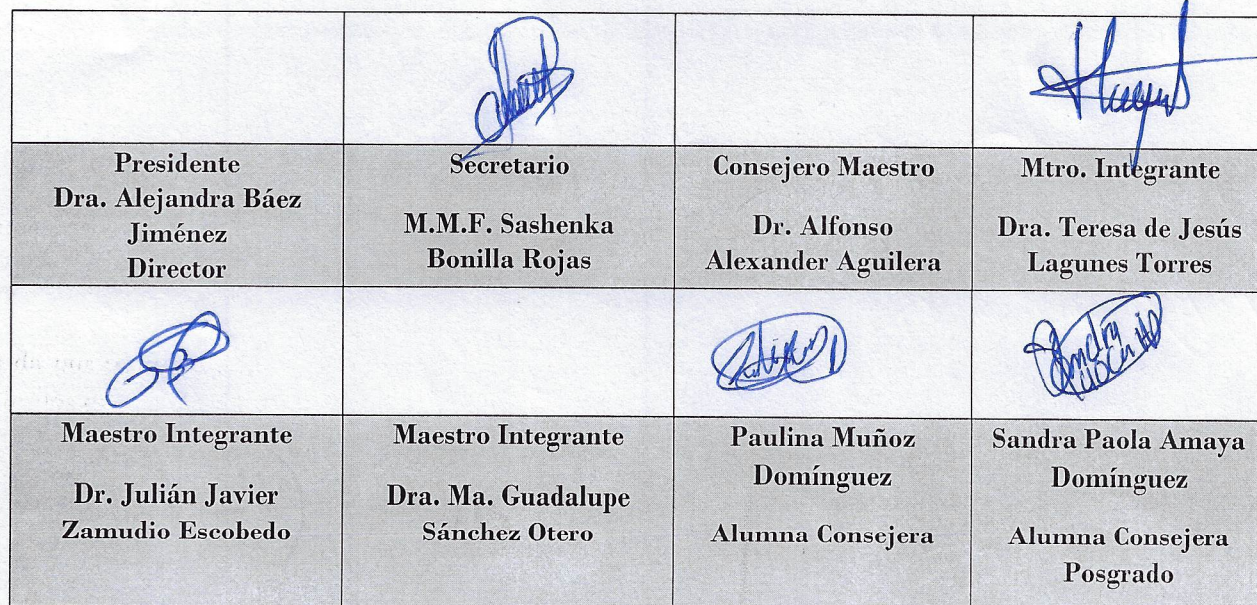 Presidente
Dra. Alejandra Báez
Jiménez
Director
Secretario
M.M.F. Sashenka
Bonilla Rojas
Consejero Maestro
Dr. Alfonso
Alexander Aguilera
Mtro. Integrante
Dra. Teresa de Jesús
Lagunes Torres
Maestro Integrante
Dr. Julián Javier
Zamudio Escobedo
Maestro Integrante
Dra. Ma. Guadalupe
Sánchez Otero
Paulina Muñoz
Domínguez
Alumna Consejera
Sandra Paola Amaya
Domínguez
Alumna Consejera
Posgrado